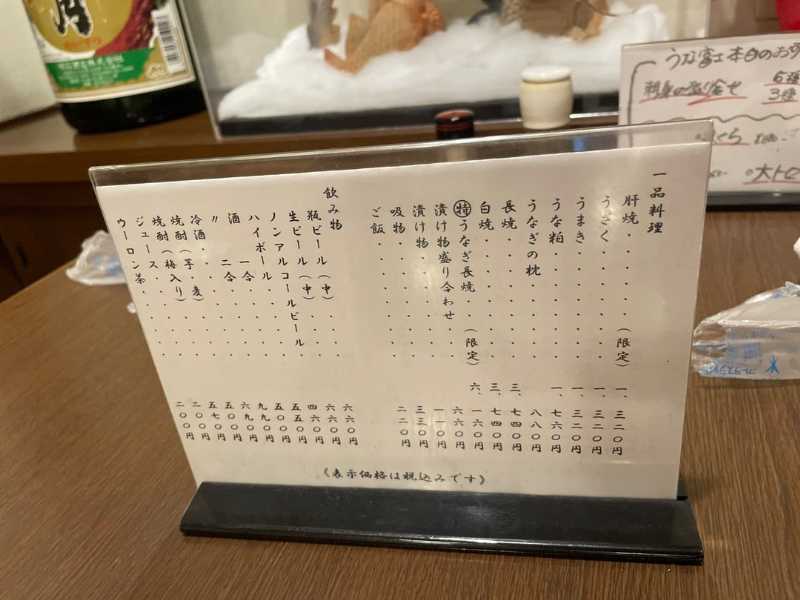 一品料理
肝焼・・・・（限定）一、三二〇円
うざく・・・・・・一、三二〇円
うまき・・・・・・一、三二〇円
うな粕・・・・・・一、七六〇円
うなぎの枕・・・・八八〇円
長焼・・・・・・・三、七四〇円
白焼・・・・・・・三、七四〇円
㊕うなぎ長焼・（限定）六、一六〇円
漬け物盛り合わせ・・六六〇円
漬け物・・・・・・一一〇円
吸物・・・・・・・三三〇円
ご飯・・・・・・・二二〇円
飲み物
瓶ビール（中）・・・六六〇円
生ビール（中）・・・六六〇円
ノンアルコールビール・四六〇円
ハイボール・・・・五五〇円
酒 一合・・・・五五〇円
〃 二合・・・・九九〇円
冷酒・・・・・・
焼酎（芋・麦）・・・五〇〇円
焼酎（梅入り）・・・五七〇円
ジュース・・・・・二〇〇円
ウーロン茶・・・・二〇〇円
《表示価格は税込みです》
うな富士本日のお
刺身の盛り合せ 6種
3種
大トロ